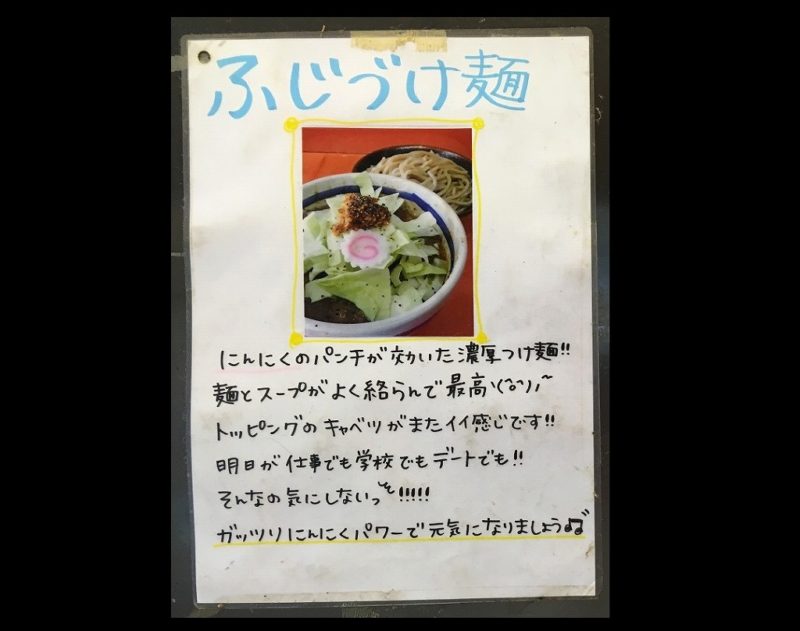 ふじづけ麺
にんにくのパンチが効いた濃厚つけ麺!!
麺とスープがよく絡らんで最高ヽ(^o^)ノ〜
トッピングのキャベツがまたイイ感じです!!
明日が仕事でも学校でもデートでも!!
そんなの気にしないっそ!!!!!
ガッツリにんにくパワーで元気になりましょう♫